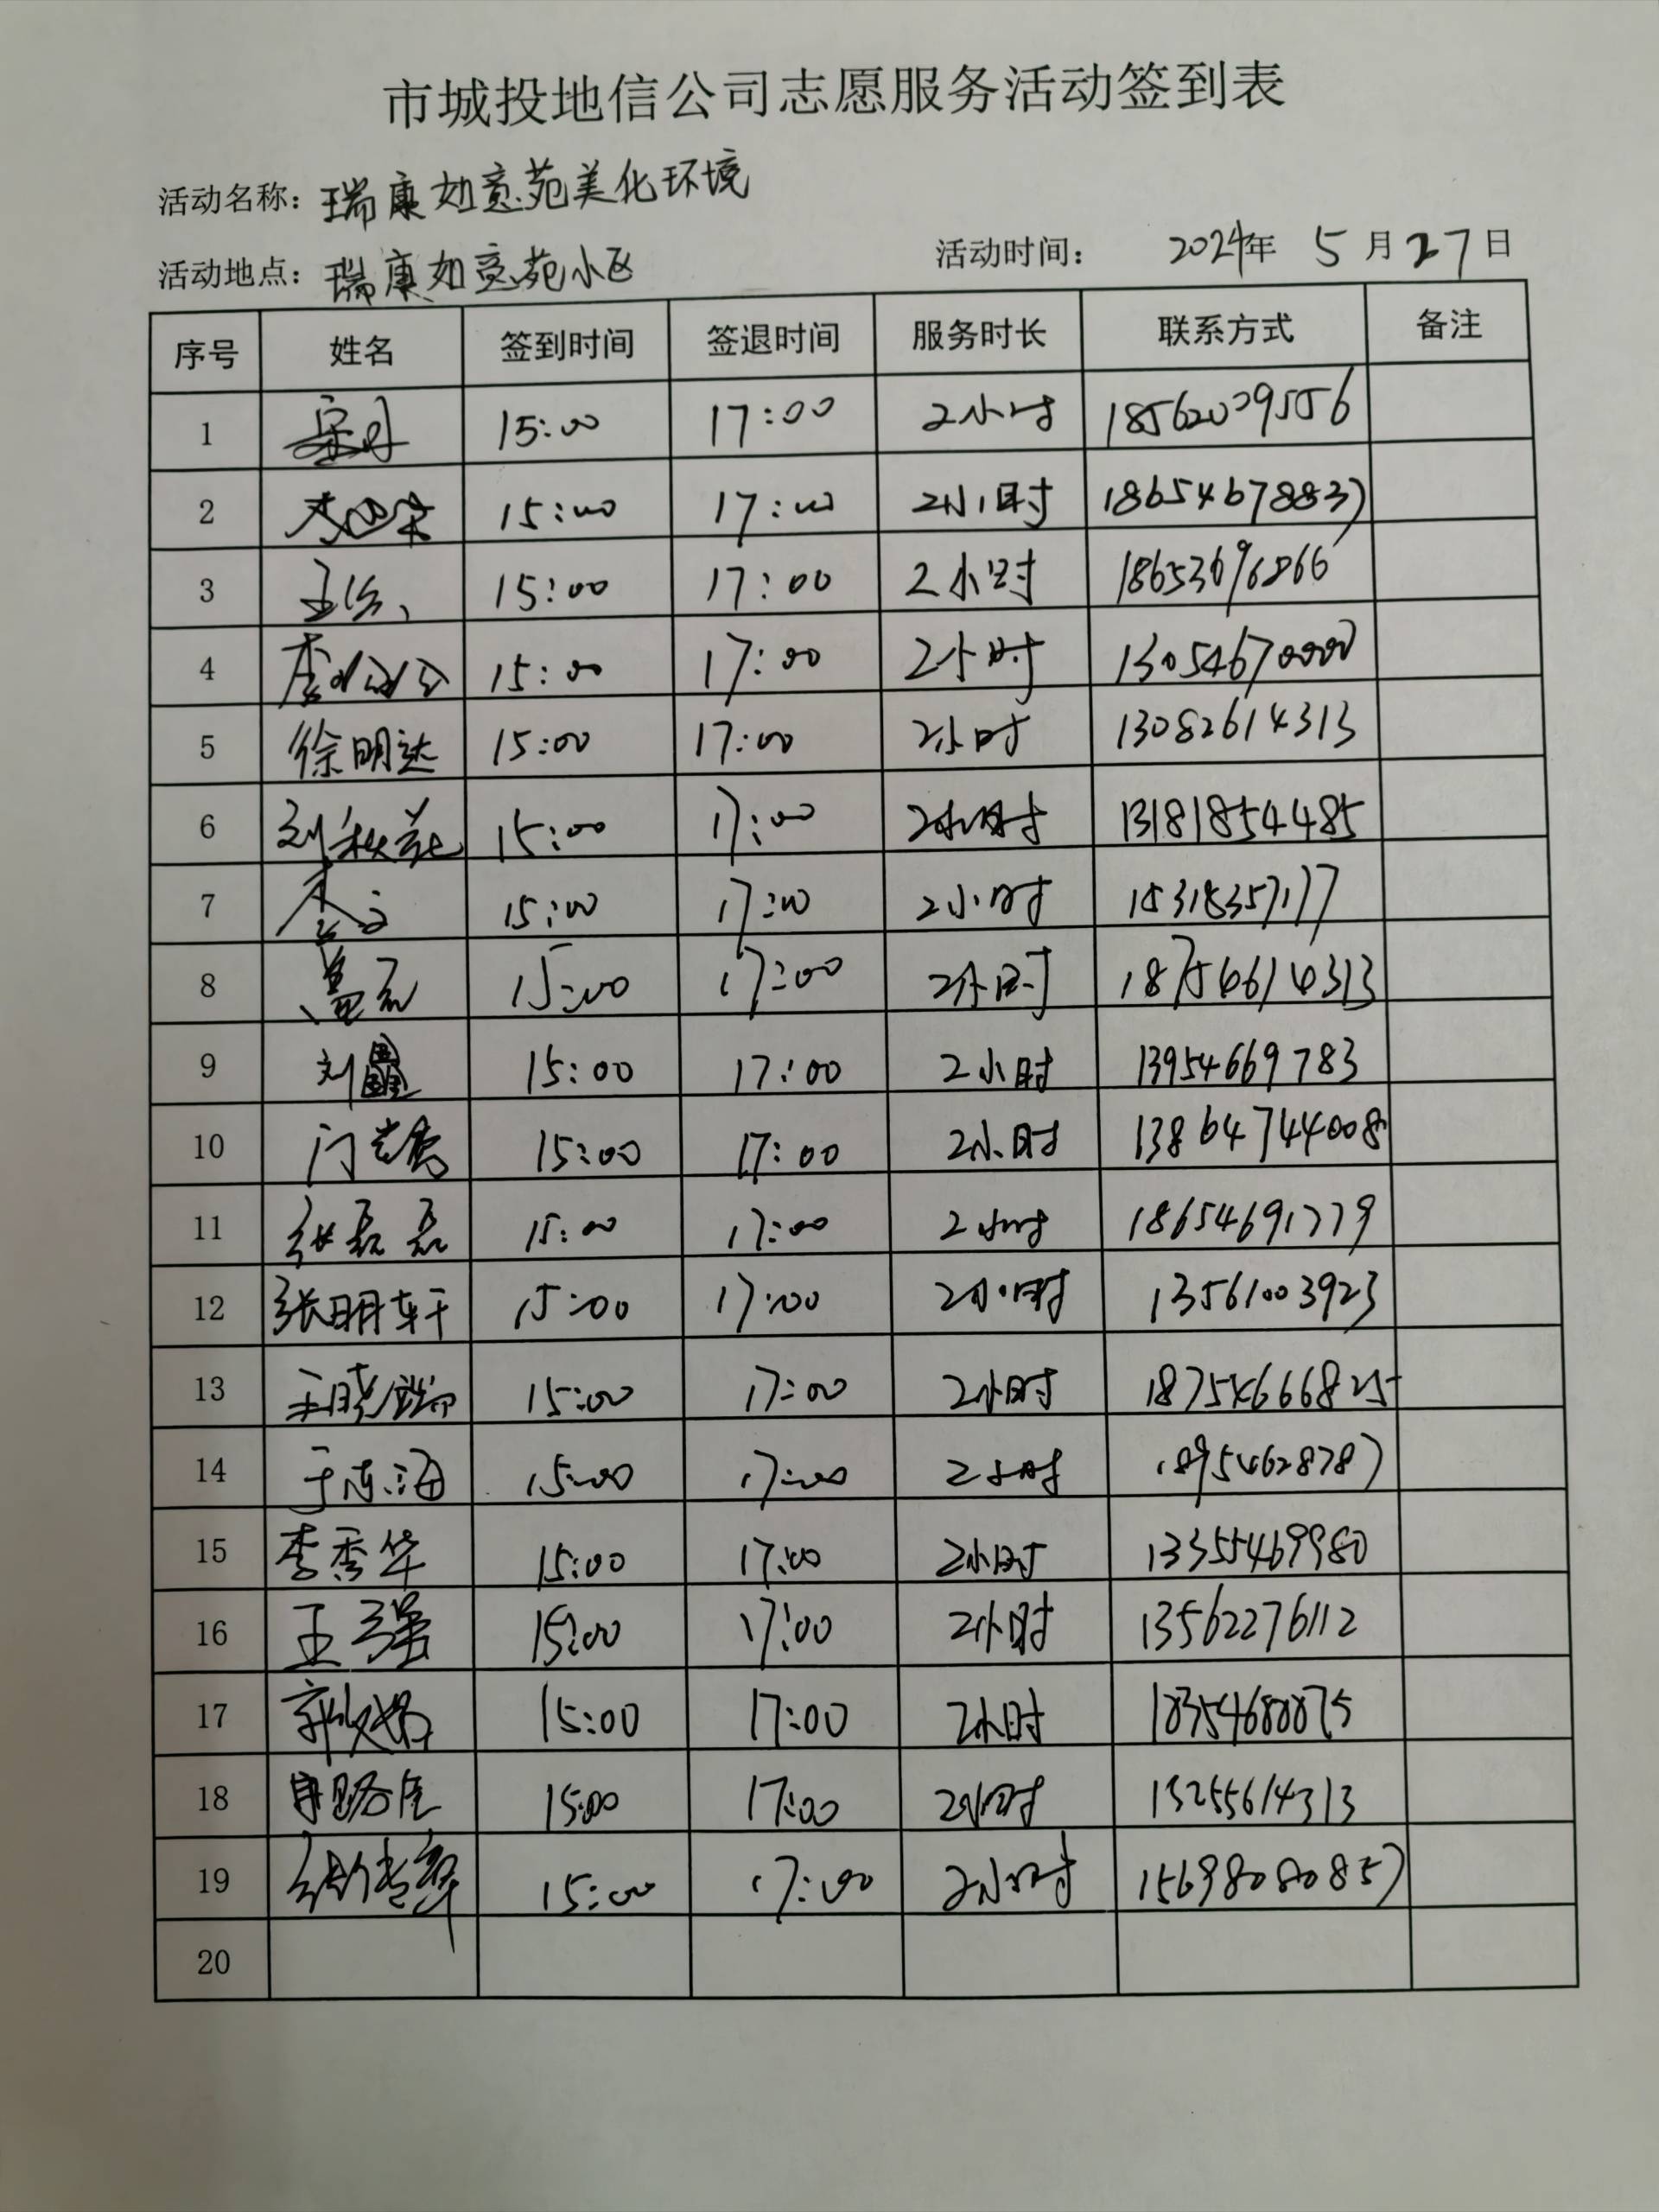 市城投地信公司志愿服务活动签到表
活动名称：瑞康如意苑美化环境
活动地点：瑞康如意苑小区 活动时间： 2024年 5月27日
序号 姓名 签到时间 签退时间 服务时长 联系方式 备注
1 15:00 17:00 2小时 18562009556
2 15:00 17:00 2小时 18654678837
3 15:00 17:00 2小时 18653696866
4 15:00 17:00 2小时 13054670000
5 徐明达 15:00 17:00 2小时 13082614313
6 刘秋苑 15:00 17:00 2小时 13181854485
7 15:00 17:00 2小时 15318357177
8 15:00 17:00 2小时 187546614313
9 刘 15:00 17:00 2小时 13954669783
10 门 15:00 17:00 2小时 13864744008
11 张磊磊 15:00 17:00 2小时 18654691779
12 张明轩 15:00 17:00 2小时 13561003923
13 王晓瑞 15:00 17:00 2小时 18754666825
14 于东海 15:00 17:00 2小时 18954628787
15 李秀华 15:00 17:00 2小时 13355469980
16 王强 15:00 17:00 2小时 13562276112
17 15:00 17:00 2小时 18354680875
18 15:00 17:00 2小时 13255614313
19 15:00 17:00 2小时 15698080857
20